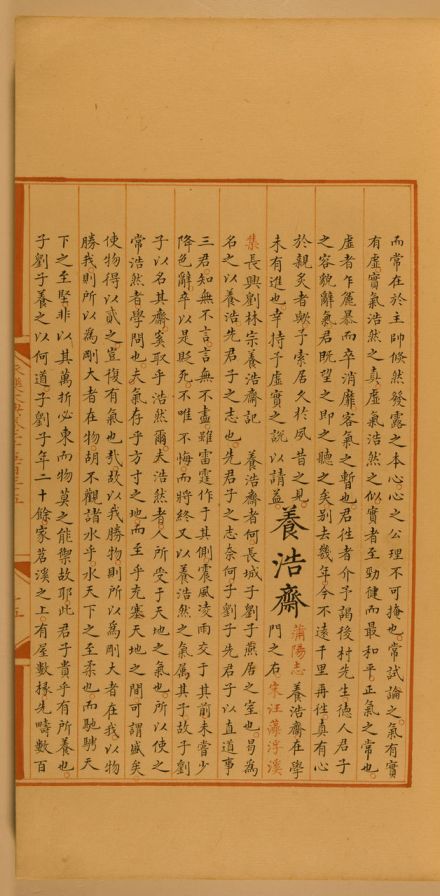 而常在於主帥倏然發露之本心心之公理不可掩也嘗試論之氣有實
有虛實氣浩然之真虛氣浩然之似實者至勁健而最和平正氣之常也
虛者乍麤暴而卒消靡客氣之暫也君徃者介予謁後村先生德人君子
之容貌辭氣君既望之即之聽之矣別去幾年今不遠千里再徃真有心
於親炙者歟予索居久於夙昔之見
養浩齋
莆陽志養浩齋在學
未有進也幸持予虛實之說以請益
門之右宋汪藻浮溪
集長興劉林宗養浩齋記 養浩齋者何長城子劉子燕居之室也曷為
名之以養浩先君子之志也先君子之志奈何子劉子先君子以直道事
三君知無不言言無不盡雖雷霆作于其側震風凌雨交于其前未嘗少
降色辭卒以是貶死不唯不悔而將終又以養浩然之氣属其子故子劉
子以名其齋奚取乎浩然爾夫浩然者人所受于天地之氣也所以使之
常浩然者學問也夫氣存乎方寸之地而至乎充塞天地之間可謂盛矣
使物得以貳之豈復有氣也㢤故以我勝物則所以為剛大者在我以物
勝我則所以為剛大者在物胡不觀諸水乎水天下之至柔也而馳騁天
下之至堅非以其萬折必東而物莫之能禦故耶此君子貴乎有所養也
子劉子養之以何道子劉子年二十餘家苕溪之上有屋數椽先疇數百